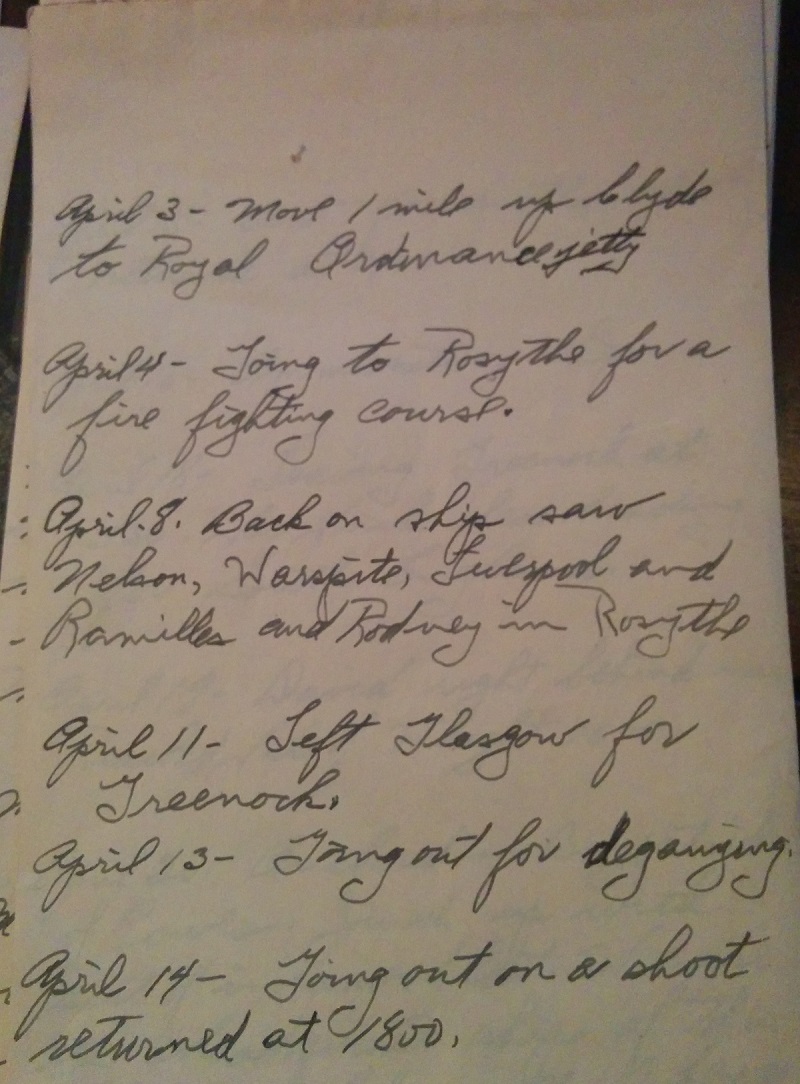 April 3 - Move 1 mile up Clyde
to Royal Ordinance jetty
April 4 - Going to Rosythe for a
fire fighting course.
April. 8. Back on ship saw
Nelson, Warspite, Liverpool and
Ramilles and Rodney in Rosythe
April 11 - Left Glasgow for
Greenock.
April 13 - Going out for degausing.
April 14 - Going out on a shoot
returned at 1800.